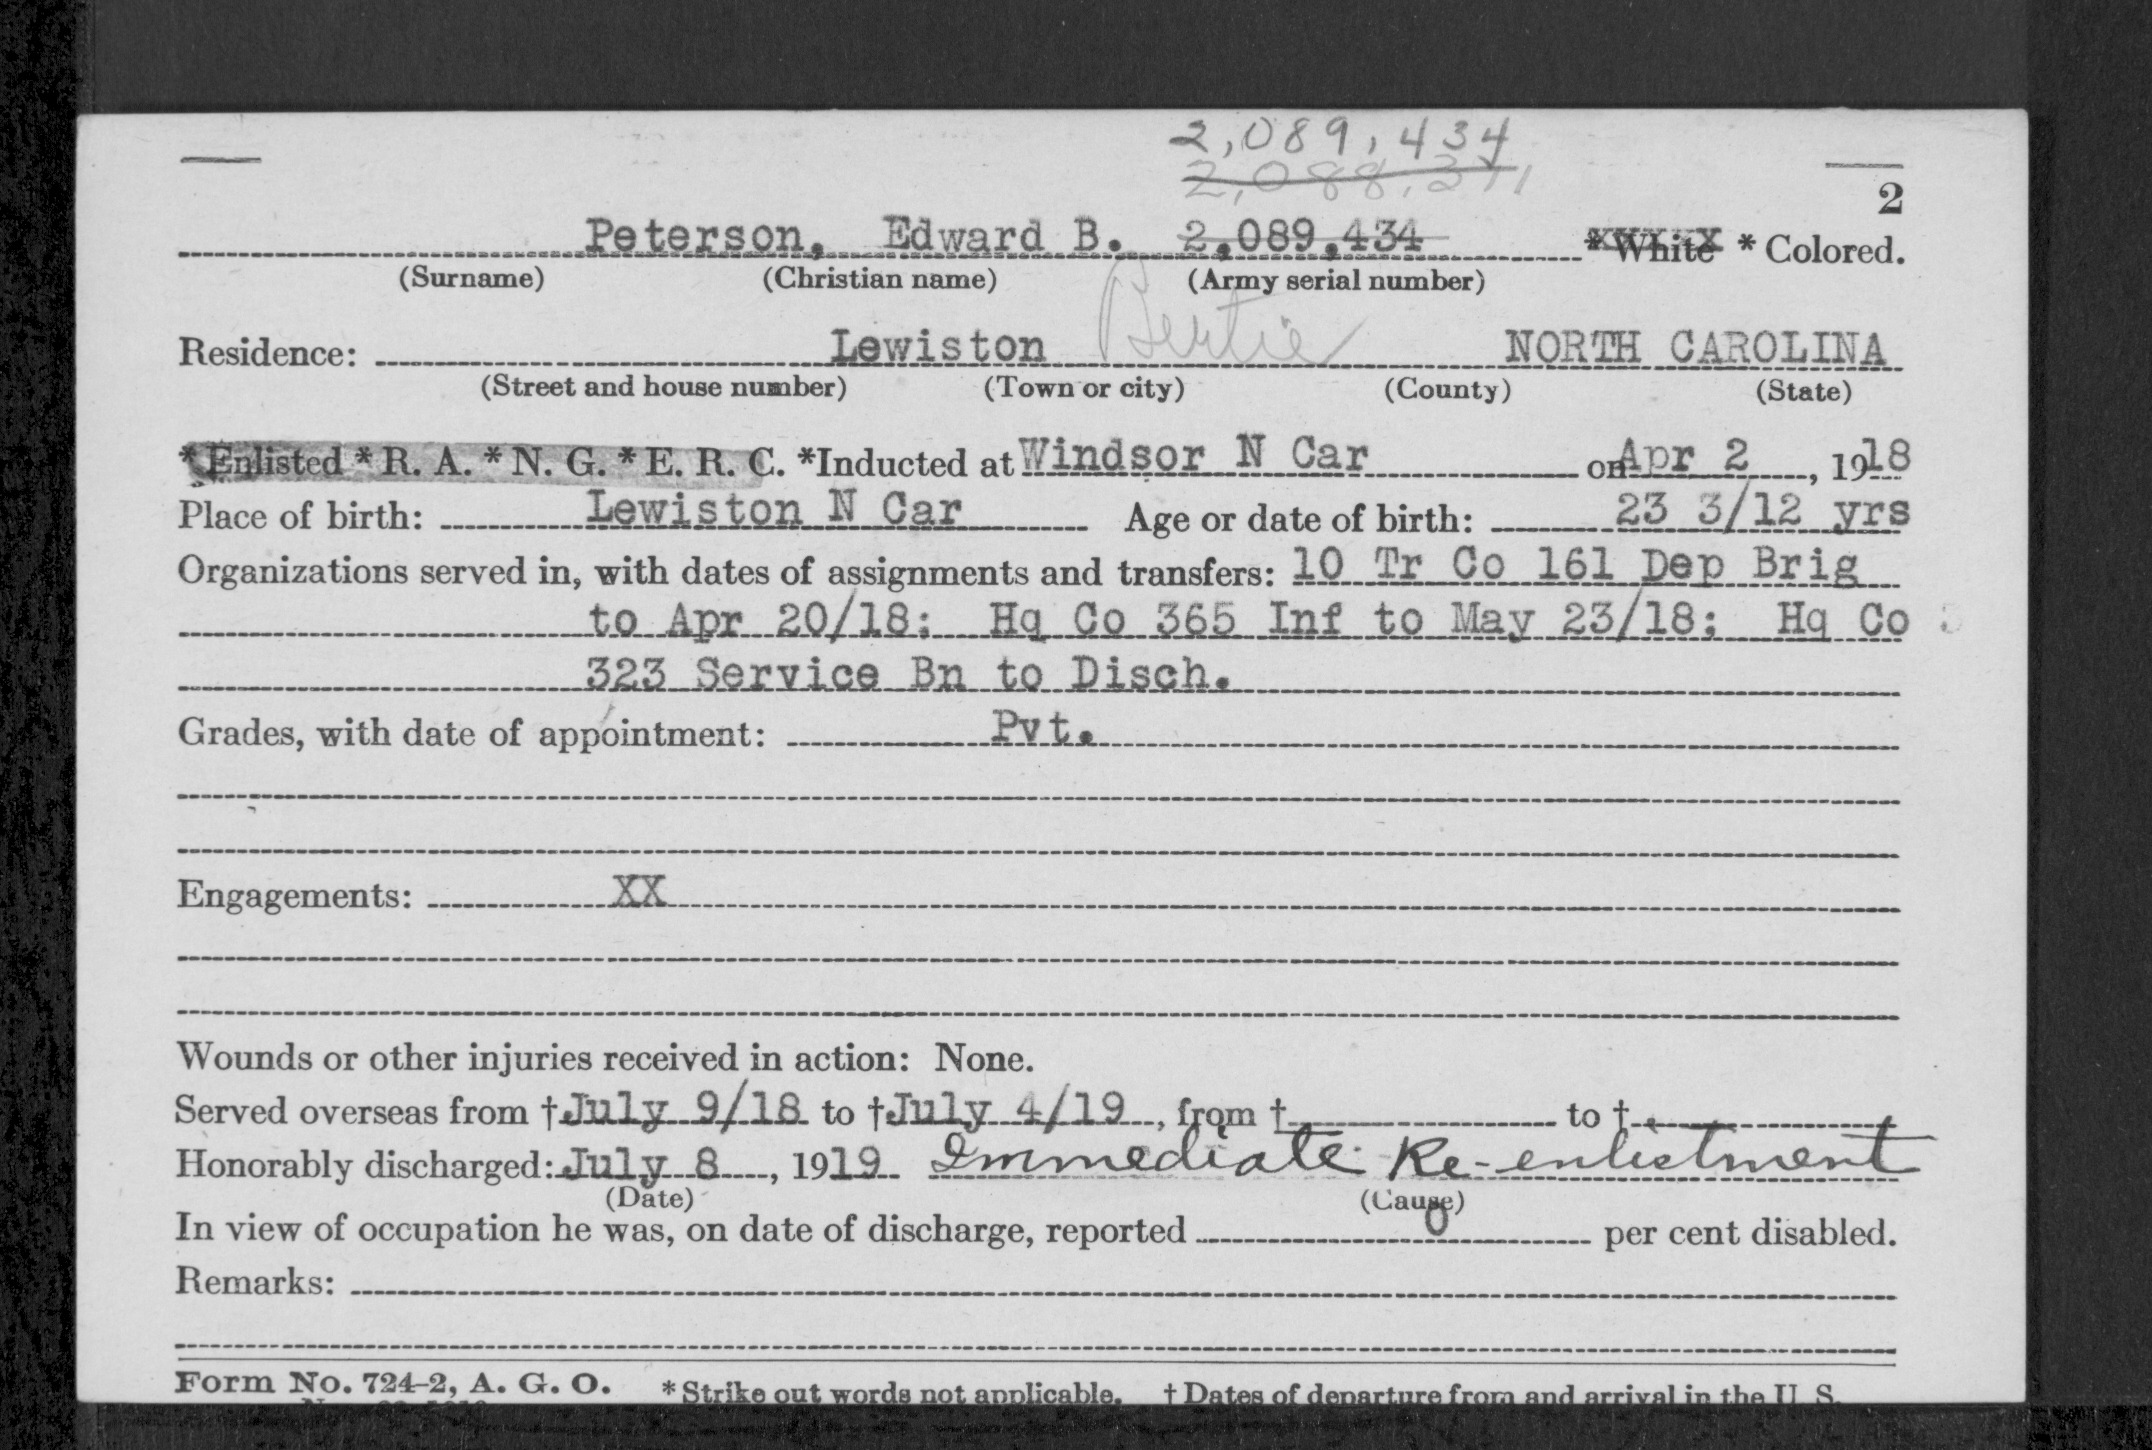 2,089,434
2
Peterson, Edward B. 2,089,434 * White * Colored.
(Surname) (Christian name) (Army serial number)
Residence: Lewiston Bertie NORTH CAROLINA
(Street and house number) (Town or city) (County) (State)
* Enlisted * R. A. * N. G. * E. R. C. *Inducted at Windsor N Car on Apr 2, 1918
Place of birth: Lewiston N Car Age or date of birth: 23 3/12 yrs
Organizations served in, with dates of assignments and transfers: 10 Tr Co 161 Dep Brig
to Apr 20/18; Hq Co 365 Inf to May 23/18; Hq Co
323 Service Bn to Disch.
Grades, with date of appointment: Pvt.
Engagements: XX
Wounds or other injuries received in action: None.
Served overseas from † July 9/18 to † July 4/19, from † to †
Honorably discharged: July 8, 1919 Immediate Re-enlistment
(Date) (Cause)
In view of occupation he was, on date of discharge, reported 0 per cent disabled.
Remarks:
Form No. 724-2, A. G. O. * Strike out words not applicable. † Dates of departure from and arrival in the U. S.